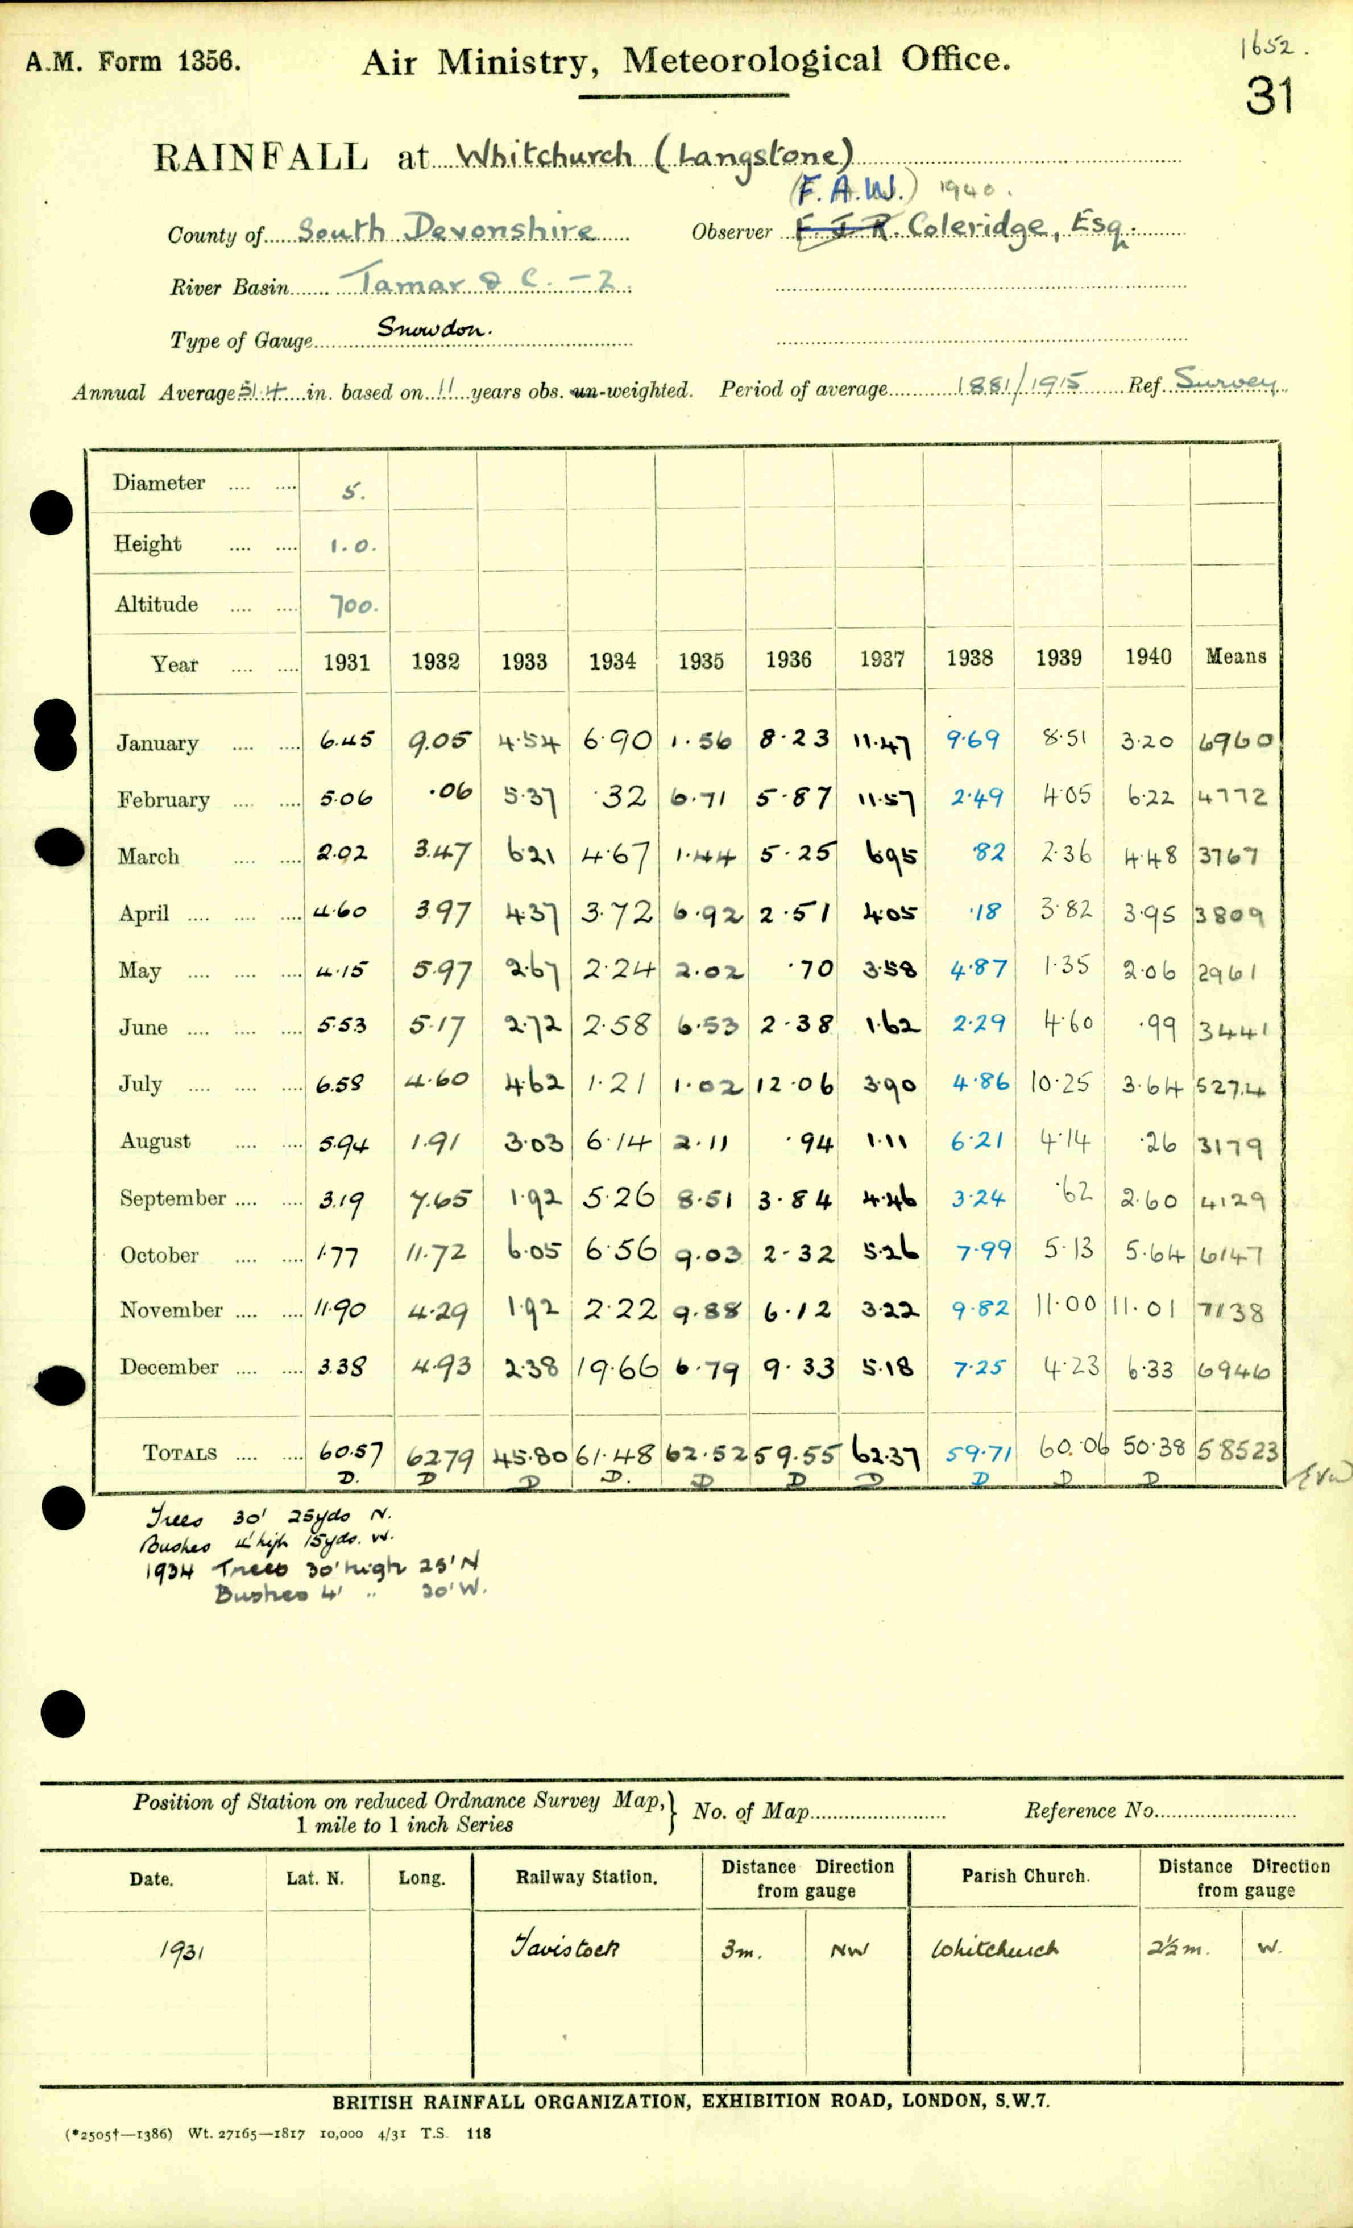 1652.
A.M. Form 1356.
Air Ministry, Meteorological Office.
31
RAINFALL at Whitchurch (Langstone)
(F.A.W.) 1940.
County of South Devonshire Observer F. J. R. Coleridge, Esq.
River Basin Tamar & C. - 2.
Type of Gauge Snowdon.
Annual Average 51.4 in. based on 11 years obs. un-weighted. Period of average 1881/1915 Ref. Survey
Diameter 5.
Height 1.0.
Altitude 700.
Year 1931 1932 1933 1934 1935 1936 1937 1938 1939 1940 Means
January 6.45 9.05 4.54 6.90 1.56 8.23 11.47 9.69 8.51 3.20 6960
February 5.06 .06 5.37 .32 6.71 5.87 11.57 2.49 4.05 6.22 4772
March 2.02 3.47 6.21 4.67 1.44 5.25 6.95 .82 2.36 4.48 3767
April 4.60 3.97 4.37 3.72 6.92 2.51 4.05 .18 3.82 3.95 3809
May 4.15 5.97 2.67 2.24 2.02 .70 3.58 4.87 1.35 2.06 2961
June 5.53 5.17 2.72 2.58 6.53 2.38 1.62 2.29 4.60 .99 3441
July 6.58 4.60 4.62 1.21 1.02 12.06 3.90 4.86 10.25 3.64 5274
August 5.94 1.91 3.03 6.14 2.11 .94 1.11 6.21 4.14 .26 3179
September 3.19 7.65 1.92 5.26 8.51 3.84 4.46 3.24 .62 2.60 4129
October 1.77 11.72 6.05 6.56 9.03 2.32 5.26 7.99 5.13 5.64 6147
November 11.90 4.29 1.92 2.22 9.88 6.12 3.22 9.82 11.00 11.01 7138
December 3.38 4.93 2.38 19.66 6.79 9.33 5.18 7.25 4.23 6.33 6946
TOTALS 60.57 62.79 45.80 61.48 62.52 59.55 62.37 59.71 60.06 50.38 58523
D. D D D. D D D D D D
Trees 30' 25yds N.
Bushes 4' high 15yds. W.
1934 Trees 30' high 25' N
Bushes 4' " 30' W.
Position of Station on reduced Ordnance Survey Map, 1 mile to 1 inch Series } No. of Map Reference No.
Date. Lat. N. Long. Railway Station. Distance Direction from gauge Parish Church. Distance Direction from gauge
1931 Tavistock 3m. NW Whitchurch 2½m. W.
BRITISH RAINFALL ORGANIZATION, EXHIBITION ROAD, LONDON, S.W.7.
(*2505†—1386) Wt. 27165—1817 10,000 4/31 T.S. 118